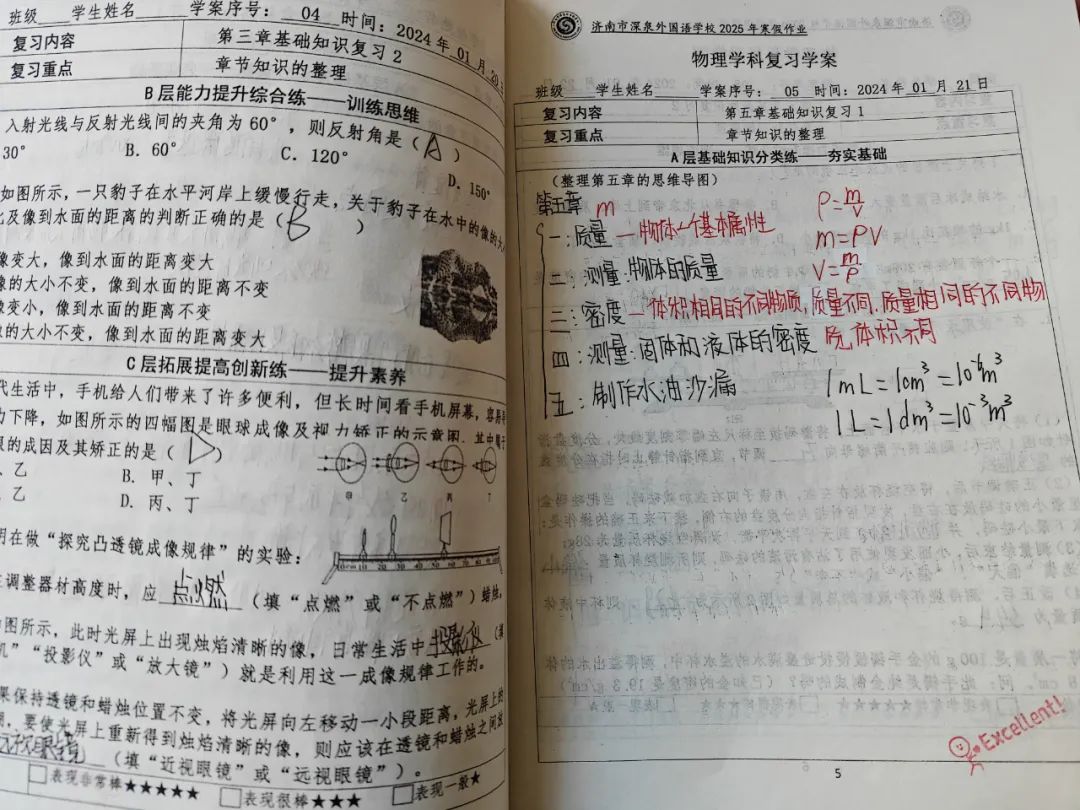 班级 学生姓名 学案序号: 04 时间: 2024年 01月 20日
复习内容 第三章基础知识复习 2
复习重点 章节知识的整理
B层能力提升综合练——训练思维
入射光线与反射光线间的夹角为 60°，则反射角是（A）
30° B. 60° C. 120° D. 150°
如图所示，一只豹子在水平河岸上缓慢行走，关于豹子在水中的像的大
及像到水面的距离的判断正确的是（B）
像变大，像到水面的距离变大
像的大小不变，像到水面的距离不变
像变小，像到水面的距离不变
的大小不变，像到水面的距离变大
C层拓展提高创新练——提升素养
代生活中，手机给人们带来了许多便利，但长时间看手机屏幕，容易
力下降，如图所示的四幅图是眼球成像及视力矫正的示意图，其中属于
眼的成因及其矫正的是（D）
、乙 B. 甲、丁
、乙 D. 丙、丁
甲 乙 丙 丁
0cm 10 20 30 40 50 60 70 80 90
明在做“探究凸透镜成像规律”的实验：
在调整器材高度时，应 点燃（填“点燃”或“不点燃”）蜡烛，
如图所示，此时光屏上出现烛焰清晰的像，日常生活中 投影仪（填
机”“投影仪”或“放大镜”）就是利用这一成像规律工作的。
果保持透镜和蜡烛位置不变，将光屏向左移动一小段距离，光屏上的
，要使光屏上重新得到烛焰清晰的像，则应该在透镜和蜡烛之间放
远视眼镜（填“近视眼镜”或“远视眼镜”）。
□表现非常棒★★★★★ □表现很棒★★★ □表现一般★
济南市深泉外国语学校 2025 年寒假作业
物理学科复习学案
班级 学生姓名 学案序号: 05 时间: 2024年 01月 21日
复习内容 第五章基础知识复习 1
复习重点 章节知识的整理
A层基础知识分类练——夯实基础
（整理第五章的思维导图）
第五章 m ρ=m/V
一：质量 — 物体一个基本属性 m=ρV
二：测量：物体的质量 V=m/ρ
三：密度 — 体积相同的不同物质，质量不同。质量相同的不同物
四：测量：固体和液体的密度 质，体积不同
五：制作水油沙漏 1mL=1cm³=10⁻⁶m³
1L=1dm³=10⁻³m³
Excellent!
5